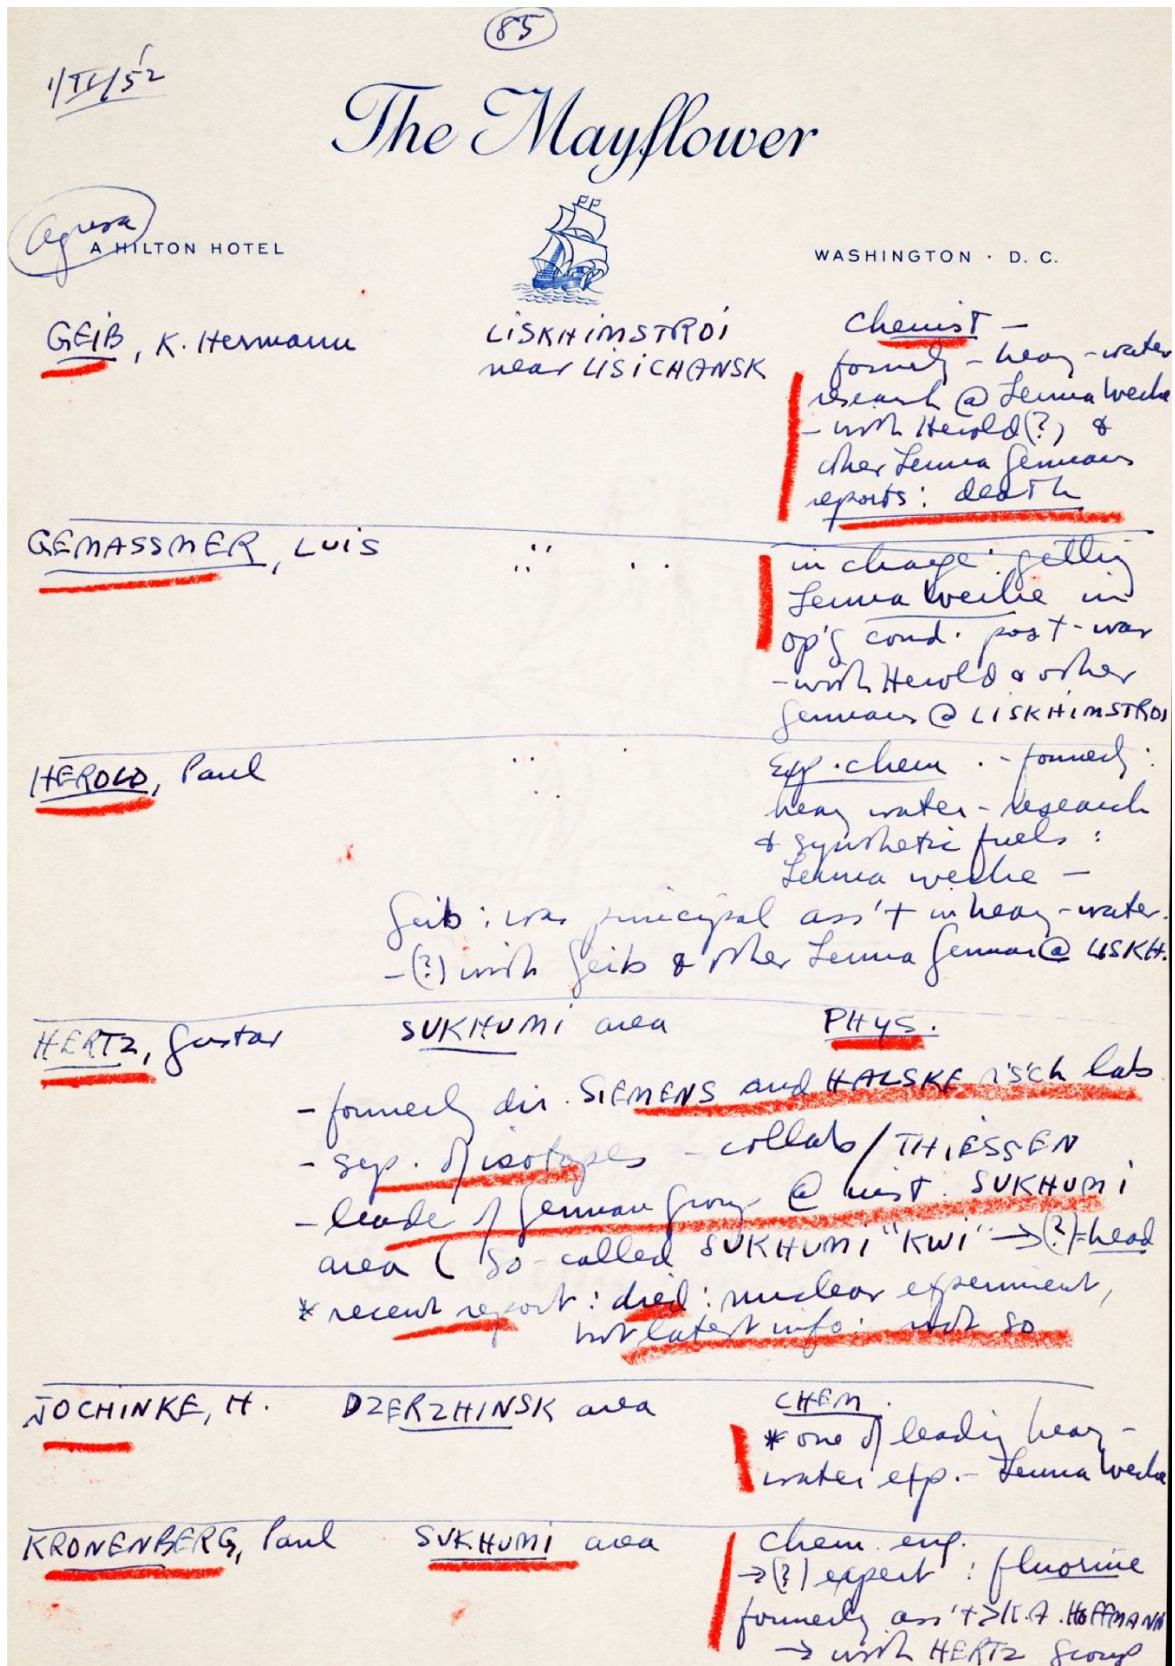 85
1/II/52
The Mayflower
A HILTON HOTEL
WASHINGTON · D. C.
GEIB, K. Hermann LISKHIMSTROI Chemist -
near LISICHANSK formerly - heavy-water
research @ Leuna Werke
- with Herold (?) &
other Leuna Germans
reports: death
GEMASSMER, LUIS " " in charge: getting
Leuna Werke in
op'g cond. post-war
- with Herold & other
Germans @ LISKHIMSTROI
HEROLD, Paul " " Exp. chem. - formerly:
heavy water - research
& synthetic fuels:
Leuna werke -
Geib: was principal ass't in heavy-water.
- (?) with Geib & other Leuna Germans @ LISKH.
HERTZ, Gustav SUKHUMI area PHYS.
- formerly dir. SIEMENS and HALSKE rs'ch lab
- sep. of isotopes - collab / THIESSEN
- leader of German group @ inst. SUKHUMI
area ( so-called SUKHUMI "KWI" → (?) = head
* recent report: died: nuclear experiment,
but latest info: not so
JOCHINKE, H. DZERZHINSK area CHEM.
* one of leading heavy-
water exp. - Leuna Werke
KRONENBERG, Paul SUKHUMI area chem. eng.
→ (?) expert: fluorine
formerly ass't > K.A. HOFFMANN
→ with HERTZ group